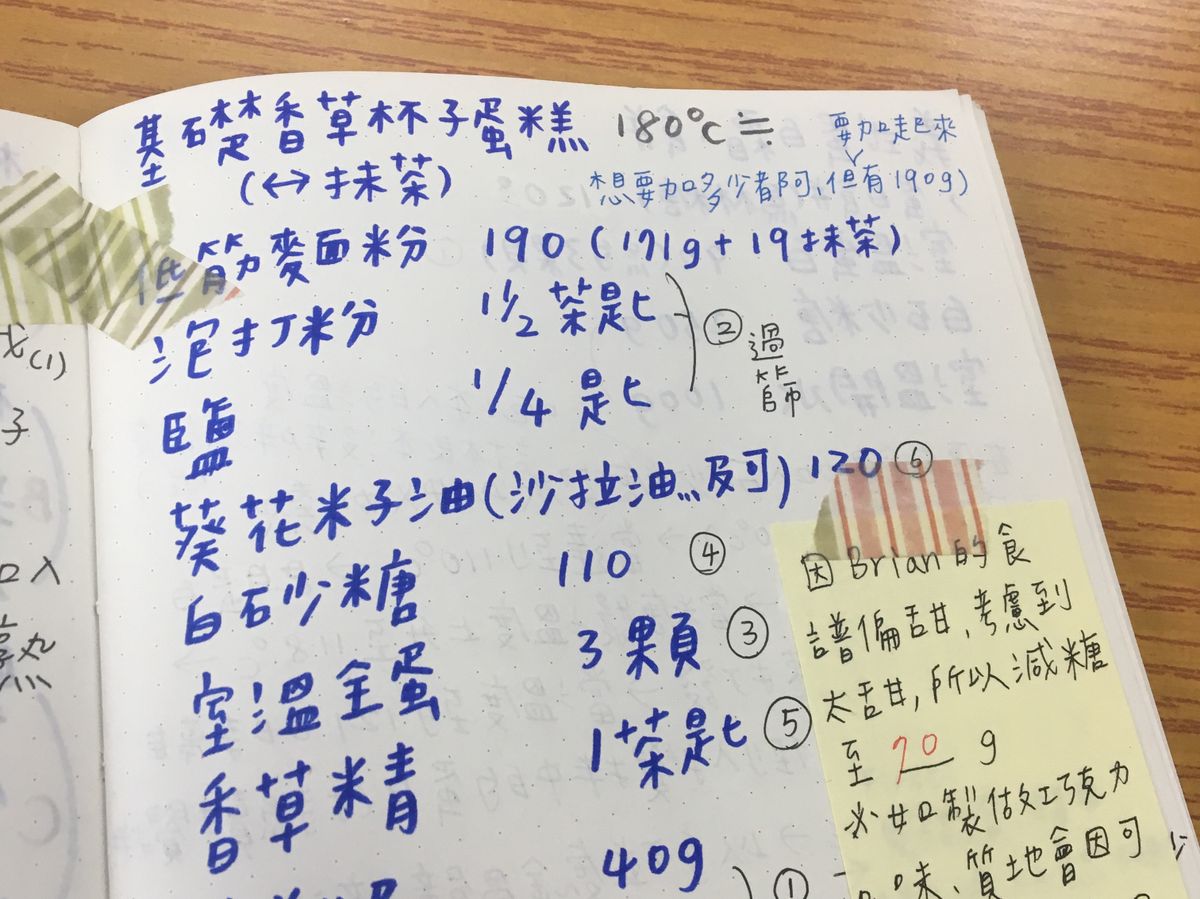 基礎香草杯子蛋糕 180°C≒
(↔抹茶)
要加起來
想要加多少者阿,但有190g)
低筋麥面粉 190(171g+19抹茶)
泡打粉 1/2 茶匙
② 過篩
鹽 1/4 匙
葵花米子油(沙拉油...反阿) 120 ⑥
白砂糖 110 ④
室溫全蛋 3顆 ③
香草精 1茶匙 ⑤
40g ①
因Brian的食
譜偏甜,考慮到
太甜,所以減糖
至 70 g
如製做巧克力
味、質地會因可
(1)
子
口入
熟